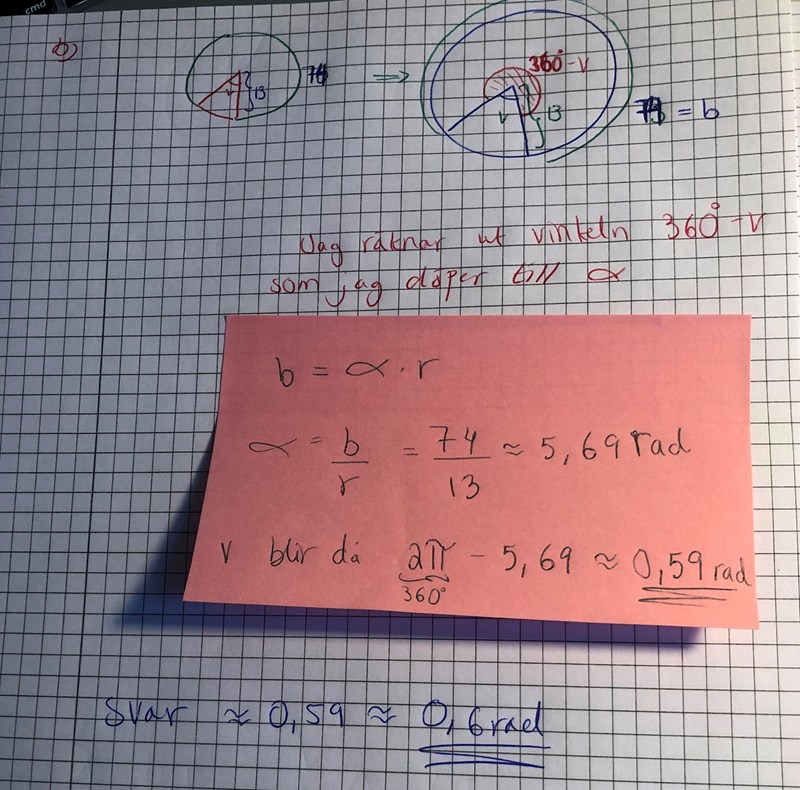 cmd
b)
v 13
⇒
360° - v
v 13
= b
Jag räknar ut vinkeln 360° - v
som jag döper till α
b = α · r
α = b/r = 74/13 ≈ 5,69 rad
v blir då 2π - 5,69 ≈ 0,59 rad
360°
Svar ≈ 0,59 ≈ 0,6 rad